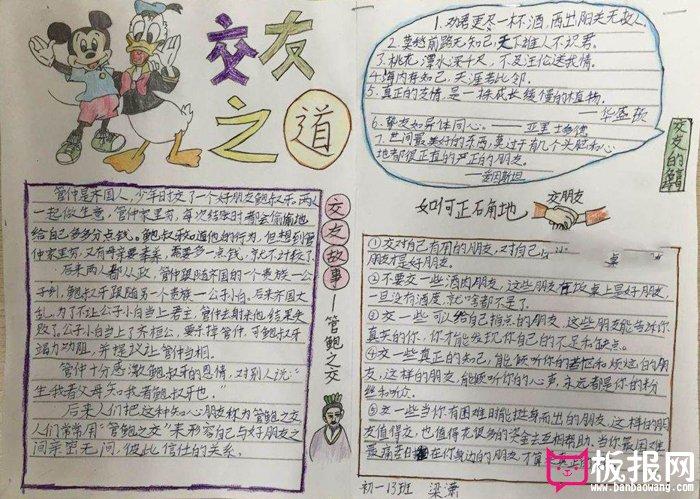 交友
之道
管仲是齐国人，少年时交了一个好朋友鲍叔牙。两人
一起做生意，管仲家里穷，每次结账时都会偷偷地
给自己多分点钱。鲍叔牙知道他的行为，但想到管
仲家里穷，又有母亲要奉养，需要多一点钱，就不计较了。
后来两人都从政，管仲跟随齐国的一个贵族—公
子纠，鲍叔牙跟随另一个贵族—公子小白。后来齐国大
乱，为了不让公子小白当上君主，管仲去射杀他，结果失
败了。公子小白当上了齐桓公，要杀掉管仲，可鲍叔牙
竭力劝阻，并提议让管仲当相。
管仲十分感激鲍叔牙的恩情，对别人说：“
生我者父母，知我者鲍叔牙也。”
后来人们把这种知心朋友称为管鲍之交
人们常常用“管鲍之交”来形容自己与好朋友之
间亲密无间，彼此信任的关系。
交友故事
—管鲍之交
1. 劝君更尽一杯酒，西出阳关无故人
2. 莫愁前路无知己，天下谁人不识君。
3. 桃花潭水深千尺，不及汪伦送我情。
4. 海内存知己，天涯若比邻。
5. 真正的友情，是一株成长缓慢的植物。
——华盛顿
6. 挚友如异体同心。——亚里士多德
7. 世间最美好的东西，莫过于有几个头脑和心
地都很正直的严正的朋友。
——爱因斯坦
交友的名言
如何正确地
交朋友
①交对自己有用的朋友，对自己
朋友才是好朋友。
②不要交一些酒肉朋友，这些朋友在饭桌上是好朋友，
一旦没有酒席，就啥都不是了。
③交一些可以给自己指点的朋友，这些朋友能告诉你
真实的你，你才能发现你自己的不足和缺点。
④交一些真正的知己，能倾听你的苦恼和烦恼的朋
友，这样的朋友，能倾听你的心声，永远都是你的粉
丝和听众。
⑤交一些当你有困难时能挺身而出的朋友，这样的朋
友值得交，也值得花很多的资金去互相帮助。当你最困难
最痛苦时，在你身边的朋友才
初一13班 梁潇
板报网
www.banbaowang.com